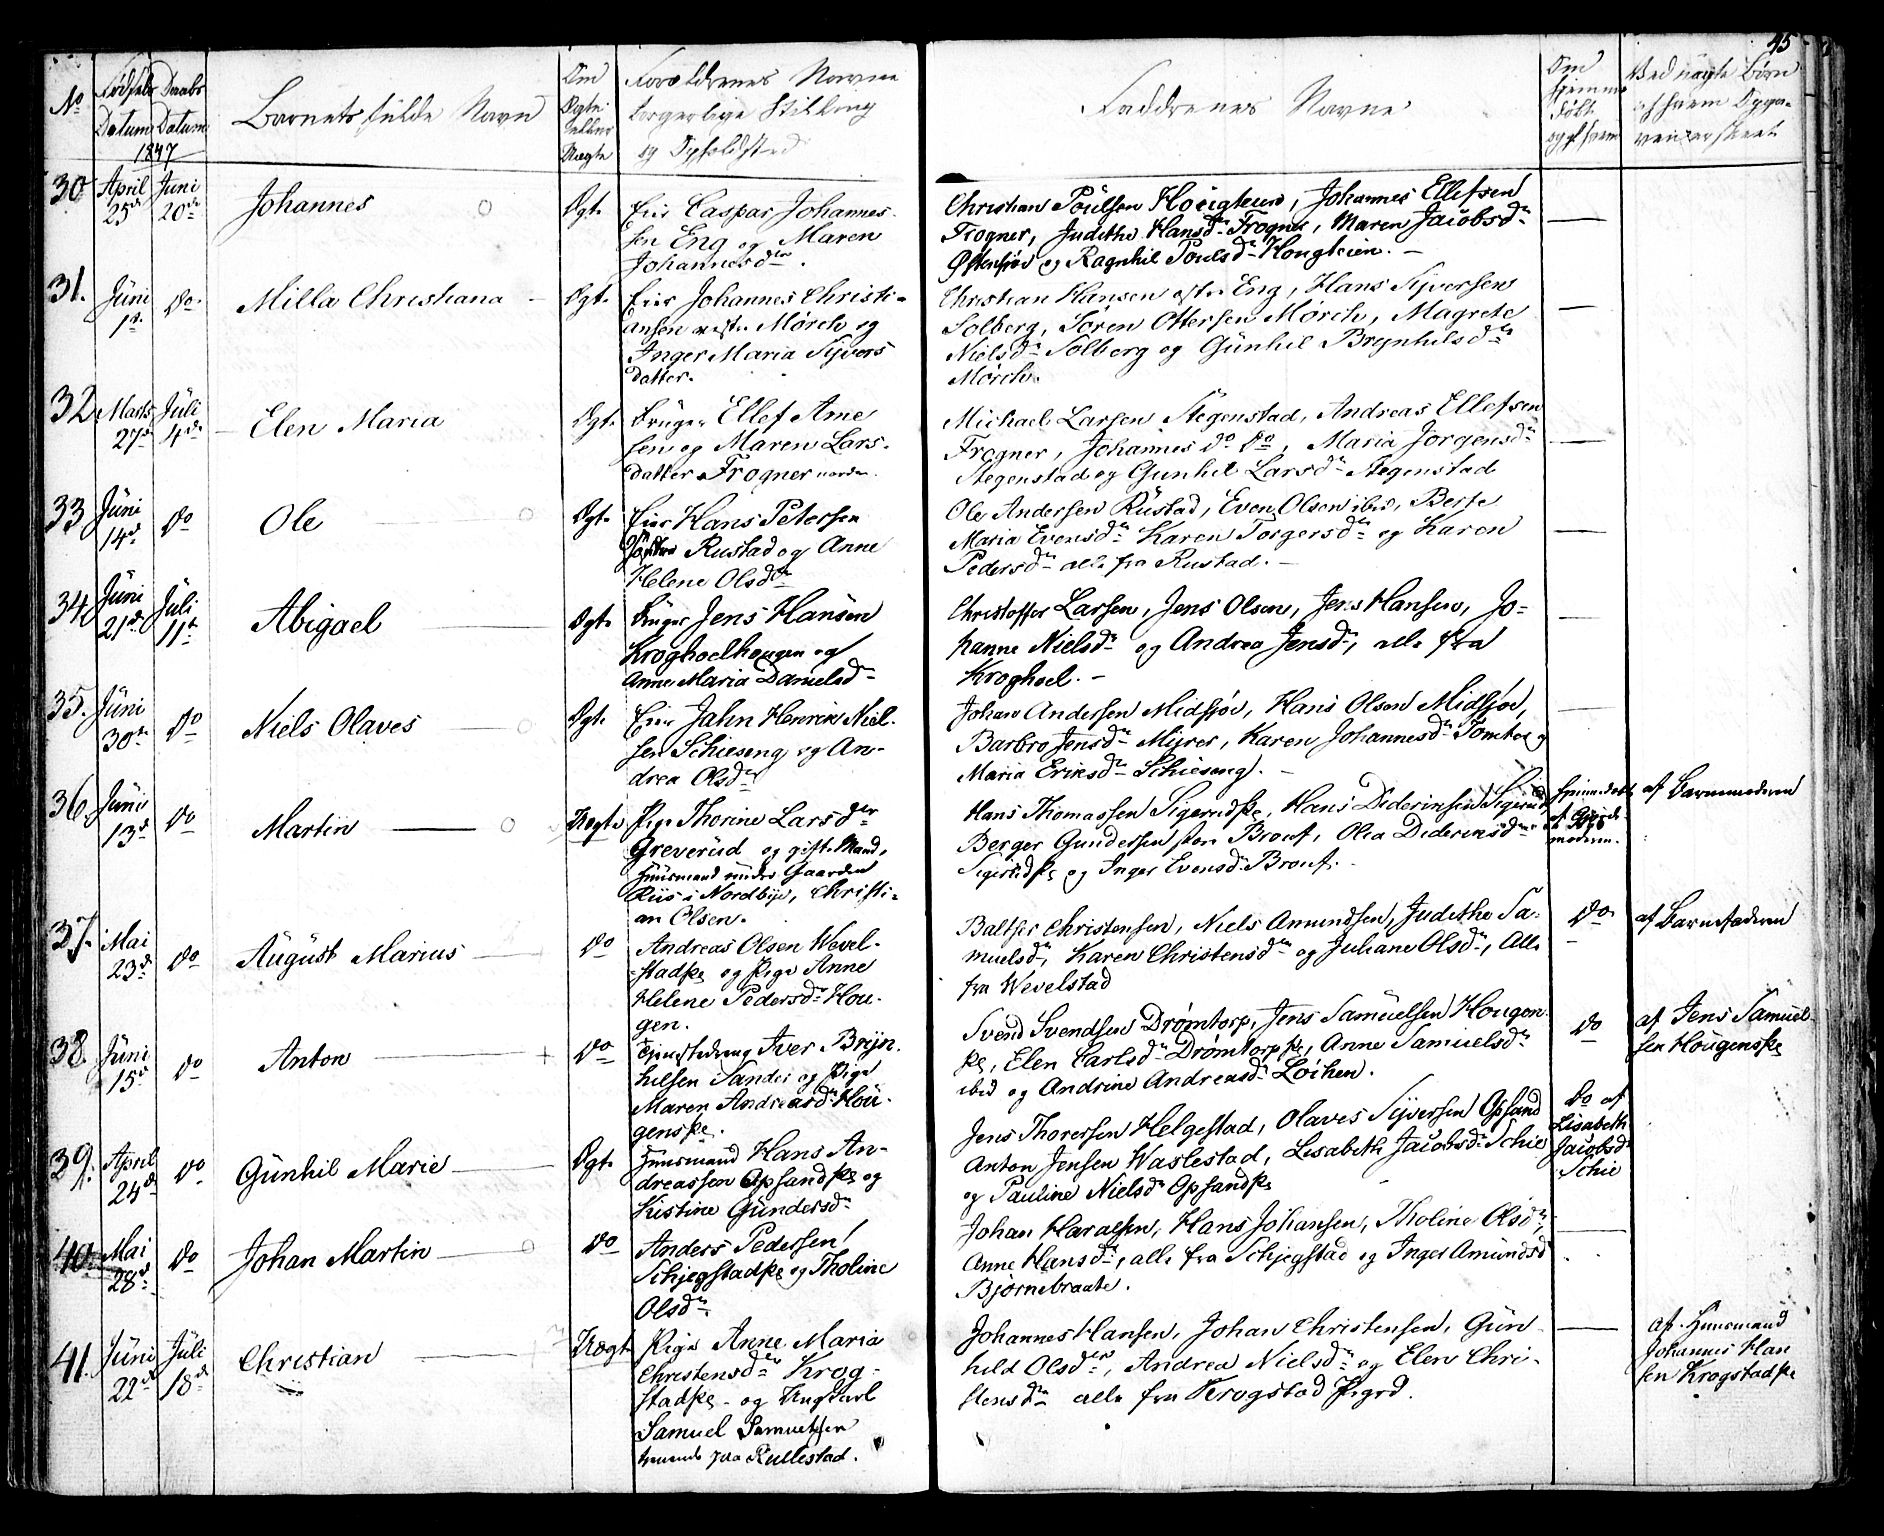 45
No
Fødsels Datum
Daabs Datum
1847
Barnets fulde Navn
Om Ægte eller Uægte
Forældrenes Navne
borgerlige Stilling
og Opholdsted
Faddrenes Navne
Om
hjemme
døbt
og af hvem
Ved uægte Børn
af hvem Opga-
ven er skeet
30 April 25de Juni 20de Johannes Ægte
Eier Caspar Johannes-
sen Eng og Maren
Johannesdtr.
Christian Poulsen Hougteien, Johannes Ellefsen
Frogner, Judithe Hansdr Frogner, Maren Jacobsdr
Østensjøe og Ragnhil Poulsdr Hougteien. —
31. Juni 1ste Do. Milla Christiana Ægte
Eier Johannes Christi-
ansen Mørch og
Inger Maria Syvers
datter.
Christian Hansen Eng, Hans Syversen
Solberg, Søren Ottersen Mørch, Magrete
Nielsdr Solberg og Günhil Brynhilsdr
Mørch.
32 Marts 27de Juli 4de Elen Maria Ægte
Bruger Ellef Arne
sen og Maren Lars-
datter Frogner nordre.
Michael Larsen Stegenstad, Andreas Ellefsen
Frogner, Johannes do do, Maria Jorgensdr
Stegenstad og Gunhil Larsdr Stegenstad
33 Juni 14de Do Ole Ægte
Eier Hans Petersen
Rustad og Anne
Helene Olsdr
Ole Andersen Rustad, Even Olsen ibid, Berte
Maria Evensdr Karen Torgersdr og Karen
Pedersdr alle fra Rustad. —
34 Juni 21de Juli 11te Abigael Ægte
Bruger Jens Hansen
Kroghoelhougen og
Anne Maria Danielsdr
Christoffer Larsen, Jens Olsen, Jens Hansen, Jo-
hanne Nielsdr og Andrea Jensdr, alle fra
Kroghoel. —
35. Juni 30te Do Niels Olaves Ægte
Eier Jahn Henrik Niel-
sen Schieseng og An-
drea Olsdr
Johan Andersen Midsjøe, Hans Olsen Midsjøe,
Barbro Jensdr Myrer, Karen Johannesdr Tomter og
Maria Eriksdr Schieseng. —
36 Juni 13de Do Martin Uægte
Pige Thorine Larsdtr
Greverud og gift Mand,
Huusmand under Gaarden
Riis i Nordbye, Christi-
an Olsen.
Hans Thomassen Sigerudpe, Hans Diderinsen Sigerud
Berger Gundersen Brout, Olea Diderinsd
Sigerudpe og Inger Evensdr Brout.
hjemmedøbt
af Gjorde-
moderen.
af Barnemoderen
37. Mai 23de Do August Marius Do
Andreas Olsen Wevel-
stadpe og Pige Anne
Helene Pedersdr Hou-
gen.
Baltser Christensen, Niels Amundsen, Judithe Sa-
muelsdr, Karen Christensdr og Juliane Olsdr, Alle
fra Wevelstad
Do.
af Barnefaderen
38. Juni 15de Do Anton Do
Tjenstedreng Iver Bryn-
hilsen Sander og Pige
Maren Andreasdr Hou-
genspe.
Svend Svendsen Drømtorp, Jens Samuelsen Hougen
pe, Elen Carlsdr Drømtorp pe, Anne Samuelsdr
ibid og Andrine Andreasdr Løiken.
Do
af Jens Samuel
sen Hougenspe
39. April 24de Do Günhil Marie Ægte
Huusmand Hans An-
dreassen Opsandpe og
Kistine Gundersdr
Jens Thorersen Helgestad, Olaves Syversen Opsand
Anton Jensen Waslestad, Lisabeth Jacobsdr Schie
og Pauline Nielsdr Opsandpe
Do af
Lisabeth
Jacobsdr
Schie
40. Mai 28de Do Johan Martin Do
Anders Pedersen
Schjegstadpe og Tholine
Olsdr
Johan Haralsen, Hans Johansen, Tholine Olsdr,
Anne Hansdr, alle fra Schjegstad og Inger Amundsd
Bjørnebraate.
41. Juni 22de Juli 18de Christian Uægte
Pige Anne Maria
Christensdr Krog-
stadpe og Ungkarl
Samuel Samuelsen
paa Kullestad.
Johannes Hansen, Johan Christensen, Gün-
hild Olsdtr, Andrea Nielsdr og Elen Chri-
stensdr alle fra Krogstad
af Huusmand
Johannes Han
sen Krogstadpe